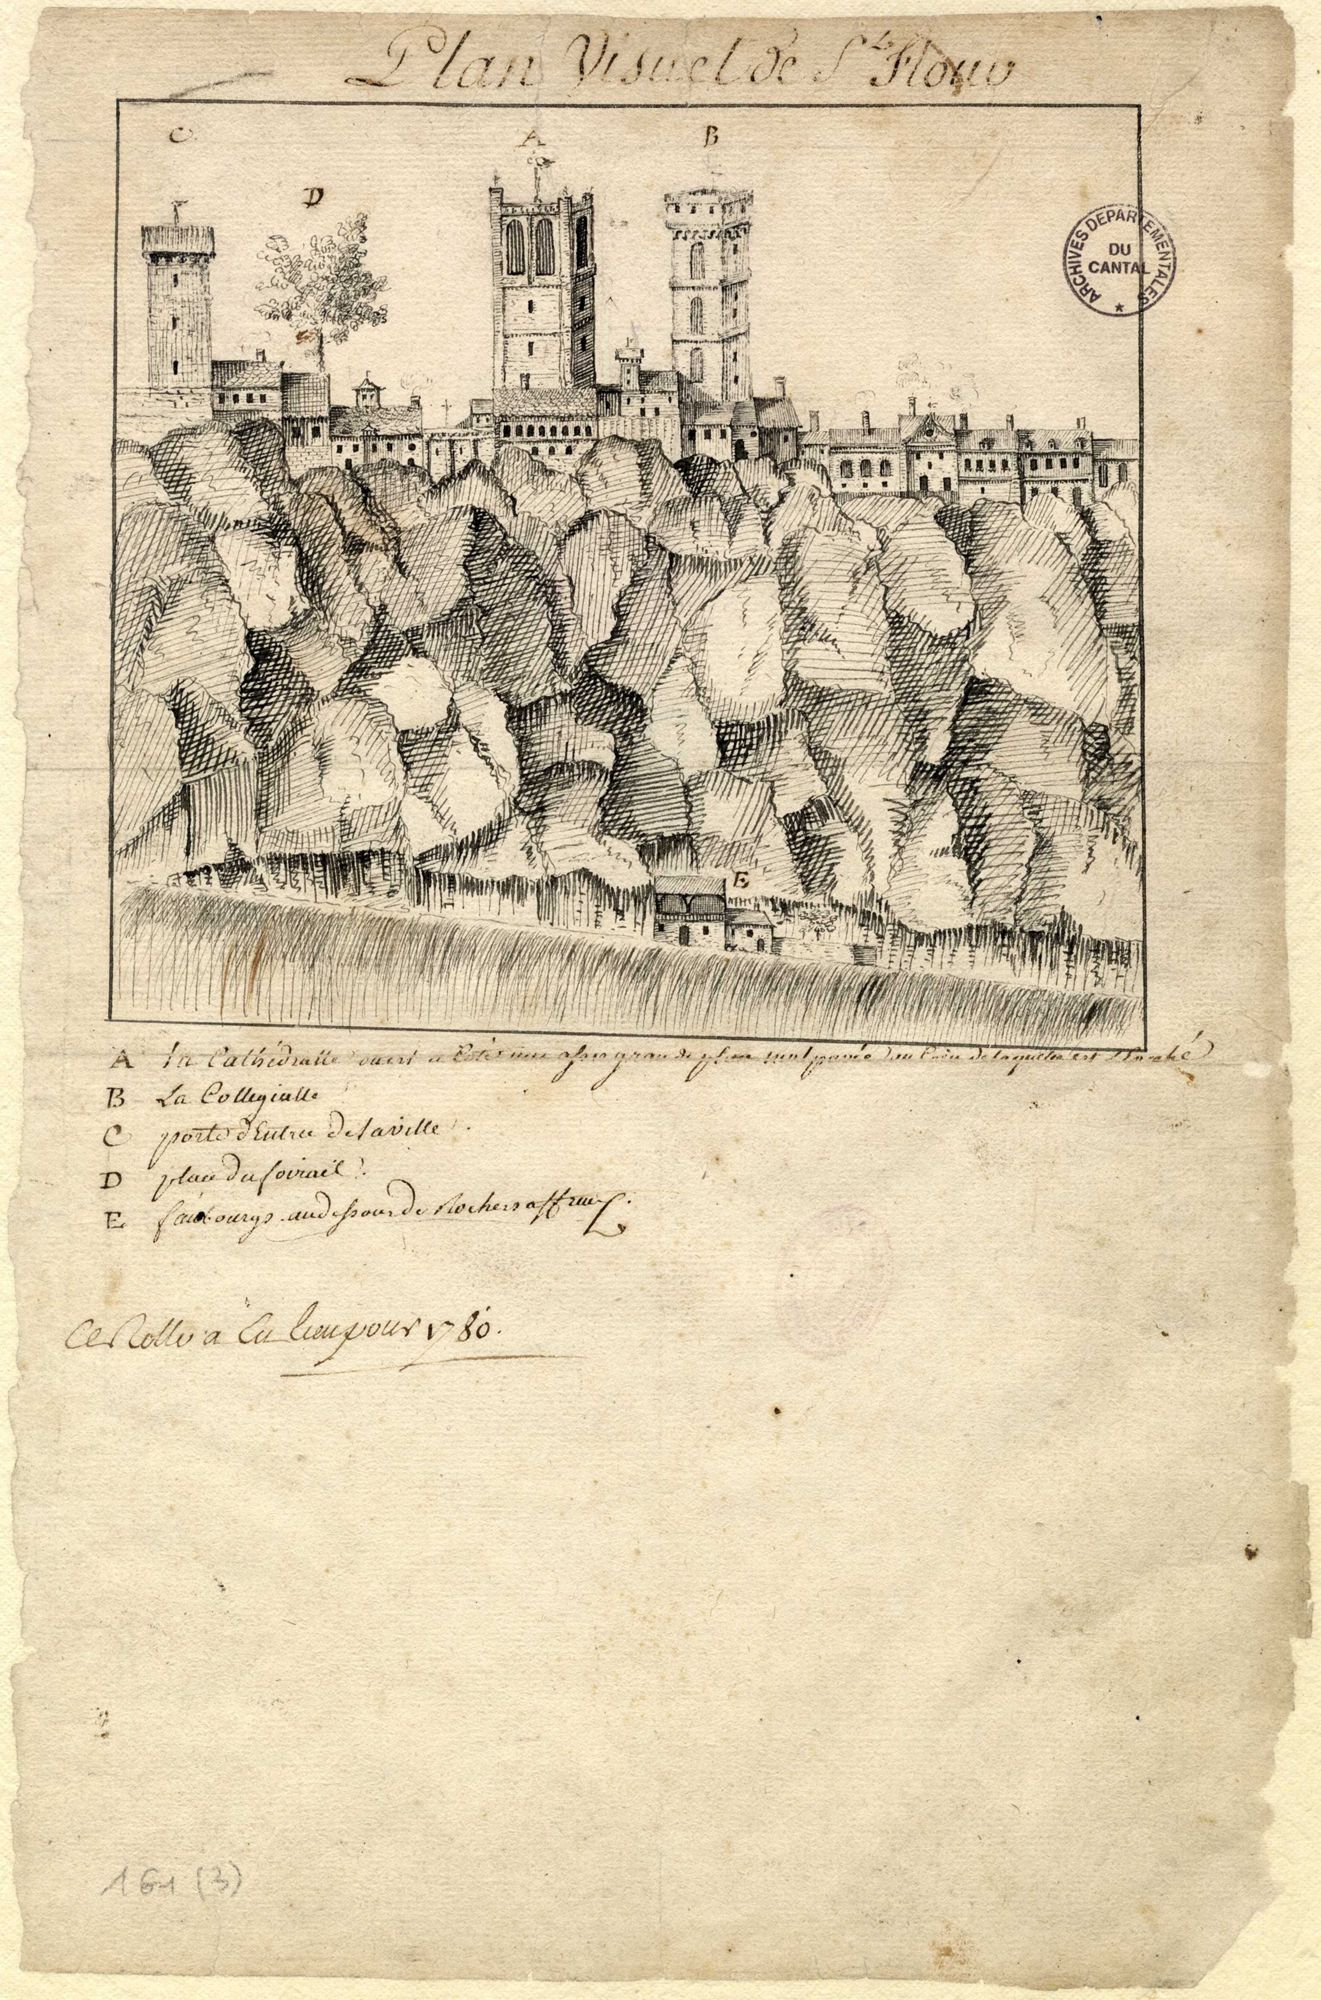 Plan Visuel de St Flour
C
A
B
D
ARCHIVES DEPARTEMENTALES
DU
CANTAL
E
A la Cathédralle a Coté une assez grande place mal pavée est l'Evêché
B La Collegialle
C porte d'Entrée de la ville.
D place du foirail
E fauxbourgs au dessous de Rochers affreux.
Ce Rolle a Eu lieu pour 1780.
161 (3)